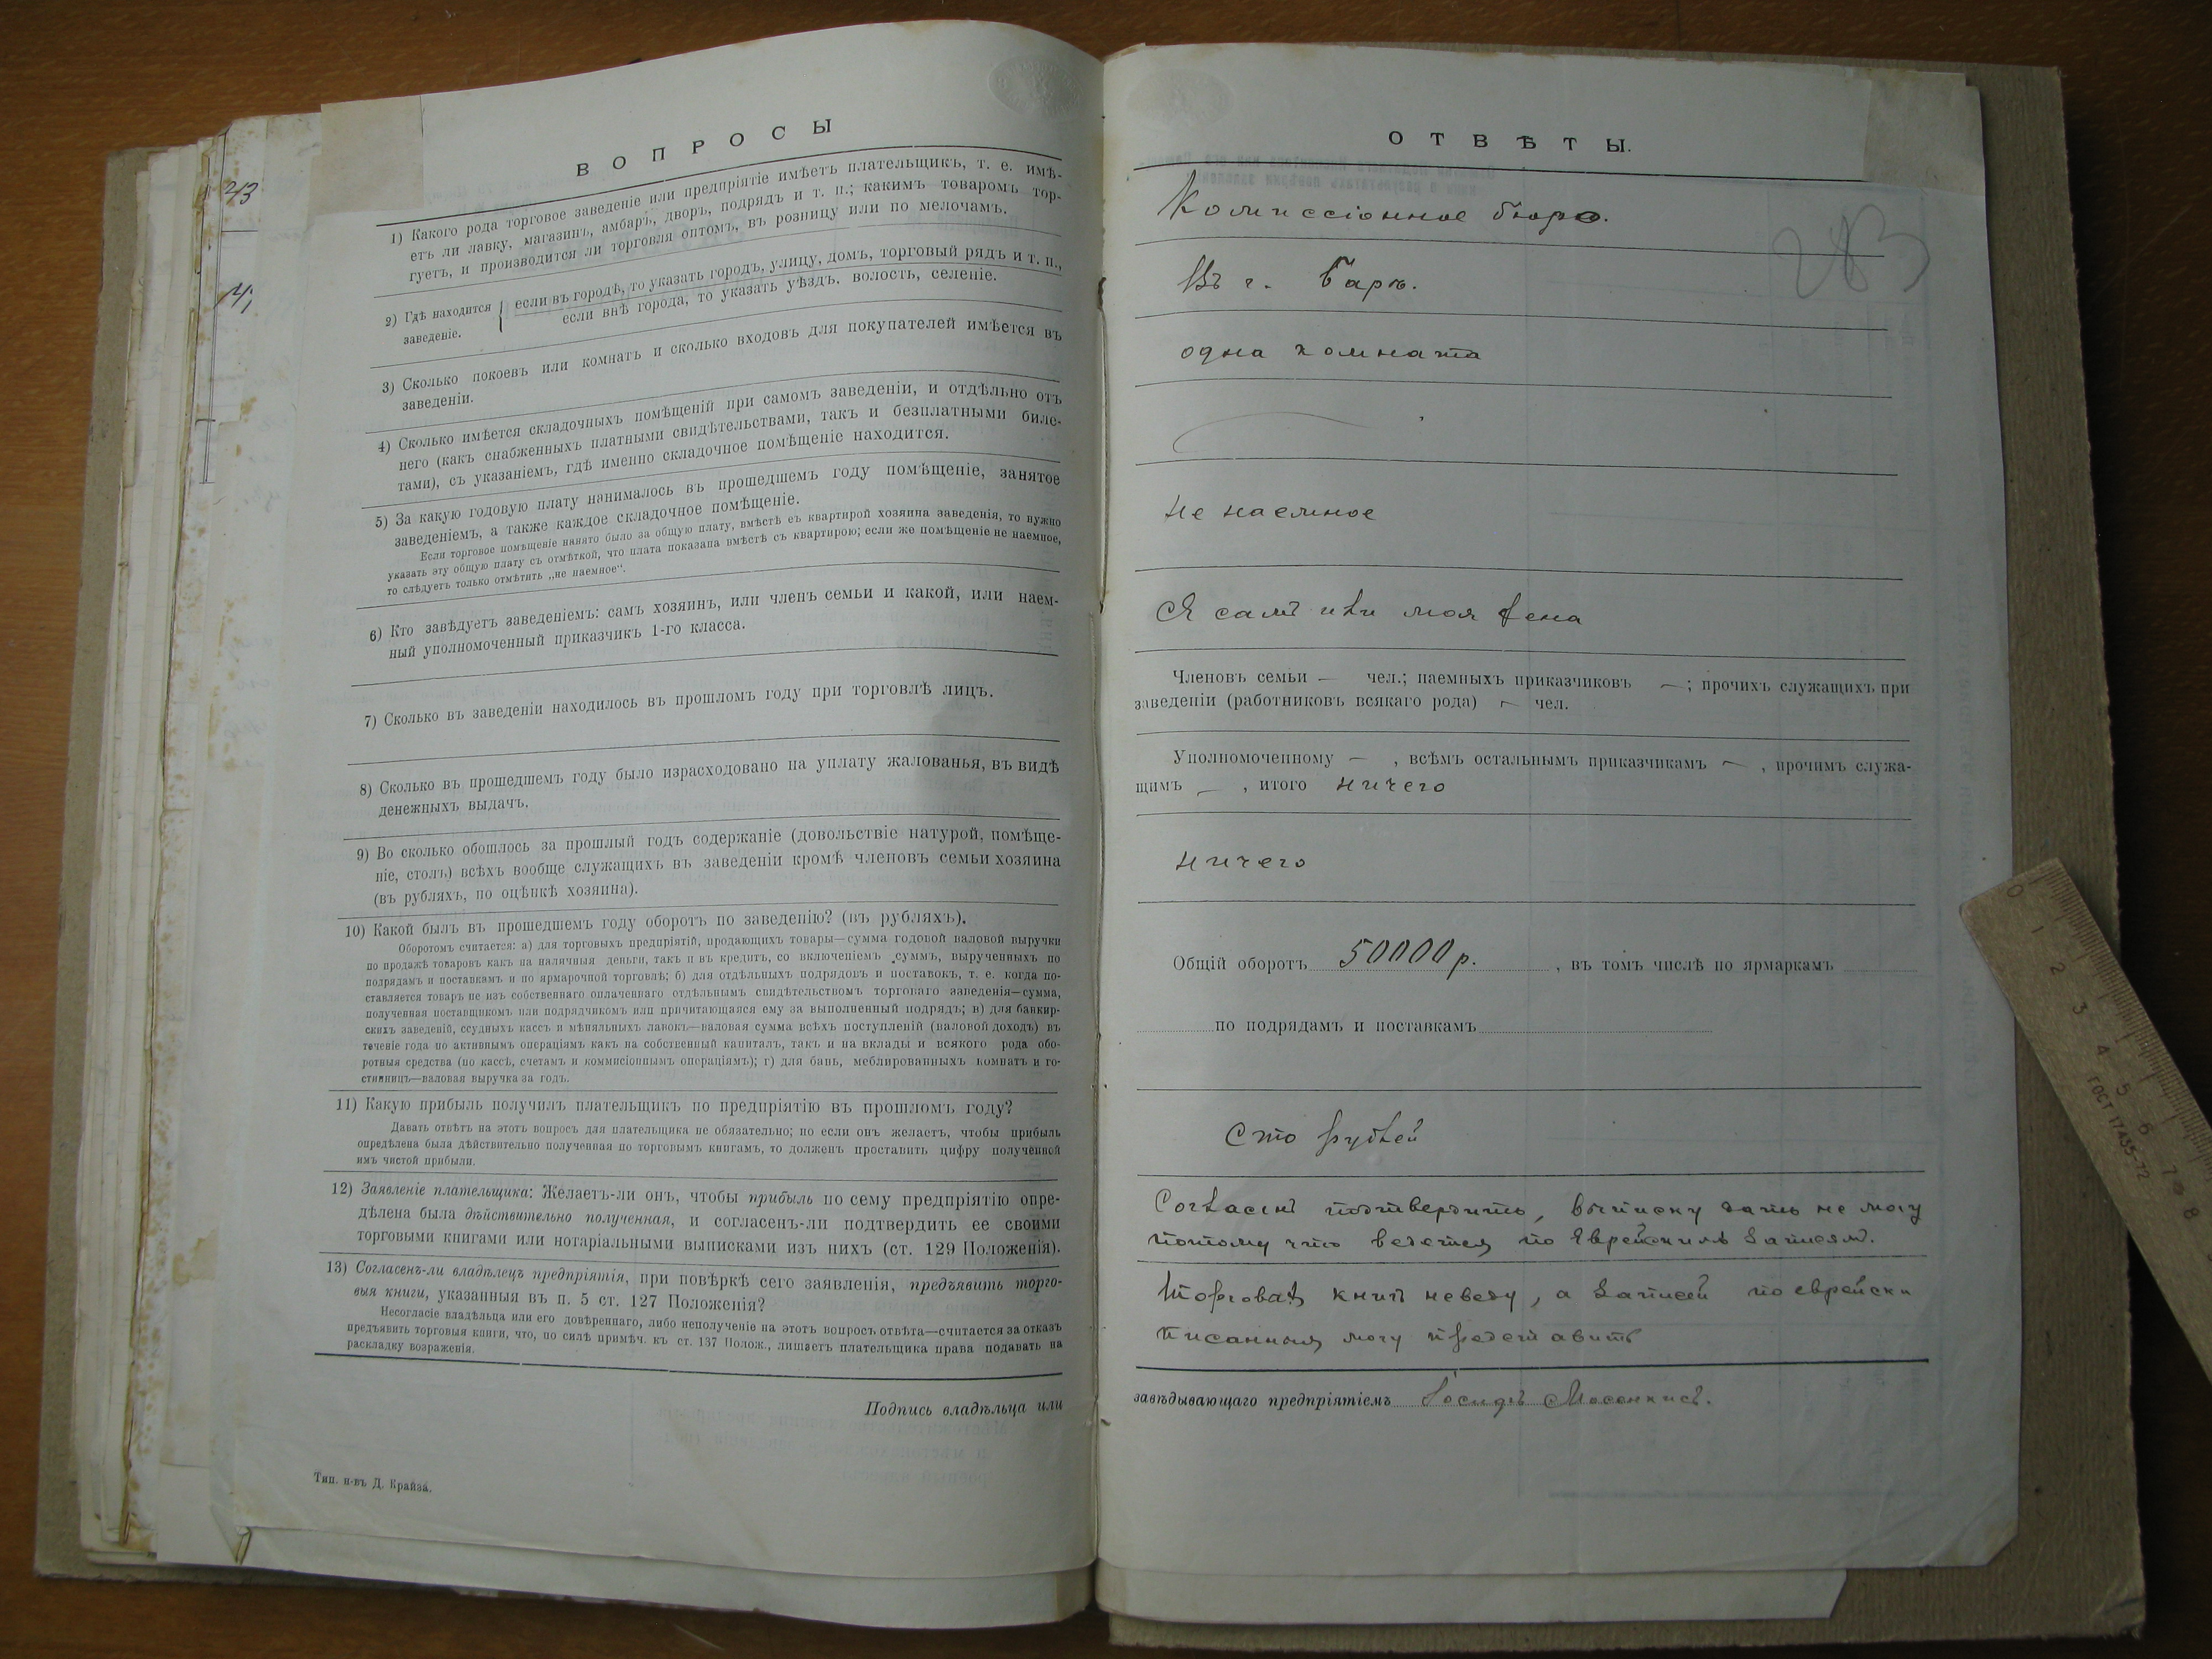 43
4,
ВОПРОСЫ
1) Какого рода торговое заведеніе или предпріятіе имѣетъ плательщикъ, т. е. имѣ-
етъ ли лавку, магазинъ, амбаръ, дворъ, подрядъ и т. п.; какимъ товаромъ тор-
гуетъ, и производится ли торговля оптомъ, въ розницу или по мелочамъ.
2) Гдѣ находится
заведеніе.
если въ городѣ, то указать городъ, улицу, домъ, торговый рядъ и т. п.,
если внѣ города, то указать уѣздъ. волость, селеніе.
3) Сколько покоевъ или комнатъ и сколько входовъ для покупателей имѣется въ
заведеніи.
4) Сколько имѣется складочныхъ помѣщеній при самомъ заведеніи, и отдѣльно отъ
него (какъ снабженныхъ платными свидѣтельствами, такъ и безплатными биле-
тами), съ указаніемъ, гдѣ именно складочное помѣщеніе находится.
5) За какую годовую плату нанималось въ прошедшемъ году помѣщеніе, занятое
заведеніемъ, а также каждое складочное помѣщеніе.
Если торговое помѣщеніе нанято было за общую плату, вмѣстѣ съ квартирой хозяина заведенія, то нужно
указать эту общую плату съ отмѣткой, что плата показана вмѣстѣ съ квартирою; если же помѣщеніе не наемное,
то слѣдуетъ только отмѣтить „не наемное“.
6) Кто завѣдуетъ заведеніемъ: самъ хозяинъ, или членъ семьи и какой, или наем-
ный уполномоченный приказчикъ 1-го класса.
7) Сколько въ заведеніи находилось въ прошломъ году при торговлѣ лицъ.
8) Сколько въ прошедшемъ году было израсходовано на уплату жалованья, въ видѣ
денежныхъ выдачъ.
9) Во сколько обошлось за прошлый годъ содержаніе (довольствіе натурой, помѣще-
ніе, столъ) всѣхъ вообще служащихъ въ заведеніи кромѣ членовъ семьи хозяина
(въ рубляхъ, по оцѣнкѣ хозяина).
10) Какой былъ въ прошедшемъ году оборотъ по заведенію? (въ рубляхъ).
Оборотомъ считается: а) для торговыхъ предпріятій, продающихъ товары—сумма годовой валовой выручки
по продажѣ товаровъ какъ на наличныя деньги, такъ и въ кредитъ, со включеніемъ суммъ, вырученныхъ по
подрядамъ и поставкамъ и по ярмарочной торговлѣ; б) для отдѣльныхъ подрядовъ и поставокъ, т. е. когда по-
ставляется товаръ не изъ собственнаго оплаченнаго отдѣльнымъ свидѣтельствомъ торговаго заведенія—сумма,
полученная поставщикомъ или подрядчикомъ или причитающаяся ему за выполненный подрядъ; в) для банкир-
скихъ заведеній, ссудныхъ кассъ и мѣняльныхъ лавокъ—валовая сумма всѣхъ поступленій (валовой доходъ) въ
теченіе года по активнымъ операціямъ какъ на собственный капиталъ, такъ и на вклады и всякого рода обо-
ротныя средства (по кассѣ, счетамъ и коммисіоннымъ операціямъ); г) для бань, меблированныхъ комнатъ и го-
стинницъ—валовая выручка за годъ.
11) Какую прибыль получилъ плательщикъ по предпріятію въ прошломъ году?
Давать отвѣтъ на этотъ вопросъ для плательщика не обязательно; но если онъ желаетъ, чтобы прибыль
опредѣлена была дѣйствительно полученная по торговымъ книгамъ, то долженъ проставить цифру полученной
имъ чистой прибыли.
12) Заявленіе плательщика: Желаетъ-ли онъ, чтобы прибыль по сему предпріятію опре-
дѣлена была дѣйствительно полученная, и согласенъ-ли подтвердить ее своими
торговыми книгами или нотаріальными выписками изъ нихъ (ст. 129 Положенія).
13) Согласенъ-ли владѣлецъ предпріятія, при повѣркѣ сего заявленія, предъявить торго-
выя книги, указанныя въ п. 5 ст. 127 Положенія?
Несогласіе владѣльца или его довѣреннаго, либо неполученіе на этотъ вопросъ отвѣта—считается за отказъ
предъявить торговыя книги, что, по силѣ примѣч. къ ст. 137 Полож., лишаетъ плательщика права подавать на
раскладку возраженія.
Подпись владѣльца или
Тип. н-въ Д. Крайза.
ОТВѢТЫ.
283
Комиссіонное бюро.
Въ г. Барѣ.
одна комната
не наемное
Я самъ или моя жена
Членовъ семьи — чел.; наемныхъ приказчиковъ —; прочихъ служащихъ при
заведеніи (работниковъ всякаго рода) — чел.
Уполномоченному — , всѣмъ остальнымъ приказчикамъ — , прочимъ служа-
щимъ — , итого ничего
ничего
Общій оборотъ 50000 р. , въ томъ числѣ по ярмаркамъ
по подрядамъ и поставкамъ
Сто рублей
Согласенъ подтвердить, выписку дать не могу
потому что ведется по Еврейскимъ записямъ.
Торговыхъ книгъ неведу, а записей по еврейски
писанныя могу предстaвить
завѣдывающаго предпріятіемъ Іосифъ Мосонжисъ.
0 1 2 3 4 5 6 7 8
ГОСТ 17435-72